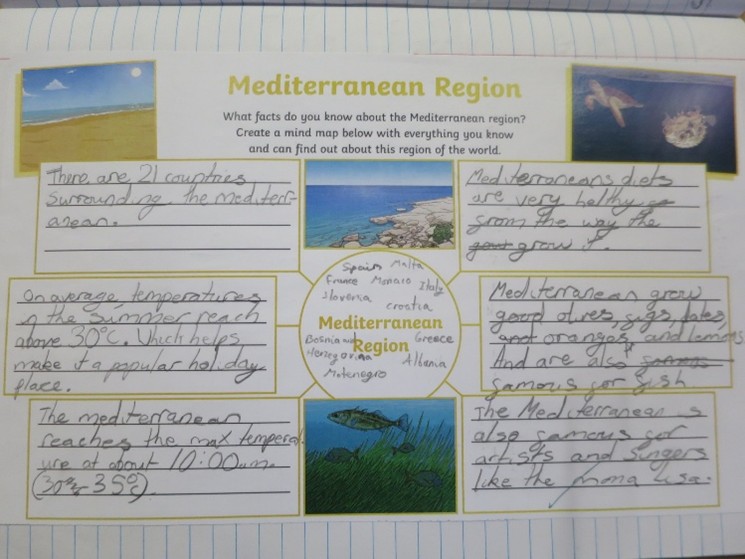 Mediterranean Region
What facts do you know about the Mediterranean region?
Create a mind map below with everything you know
and can find out about this region of the world.
There are 21 countries
Surrounding the mediterr-
anean.
Mediterraneans diets
are very helthy
from the way the
grow it.
Spain Malta
France Monaco Italy
Slovenia Croatia
Mediterranean
Region
Bosnia and Greece
Herzegovina Albania
Montenegro
On average temperatures
in the summer reach
above 30°C. Which helps
make it a popular holiday
place.
Mediterranean grow
good olives, figs, dates,
and oranges, and lemons
And are also
famous for fish
The mediterranean
reaches the max temperat-
ure at about 10:00am.
(30°c-35°c).
The Mediterranean is
also famous for
artists and singers
like the mona lisa.